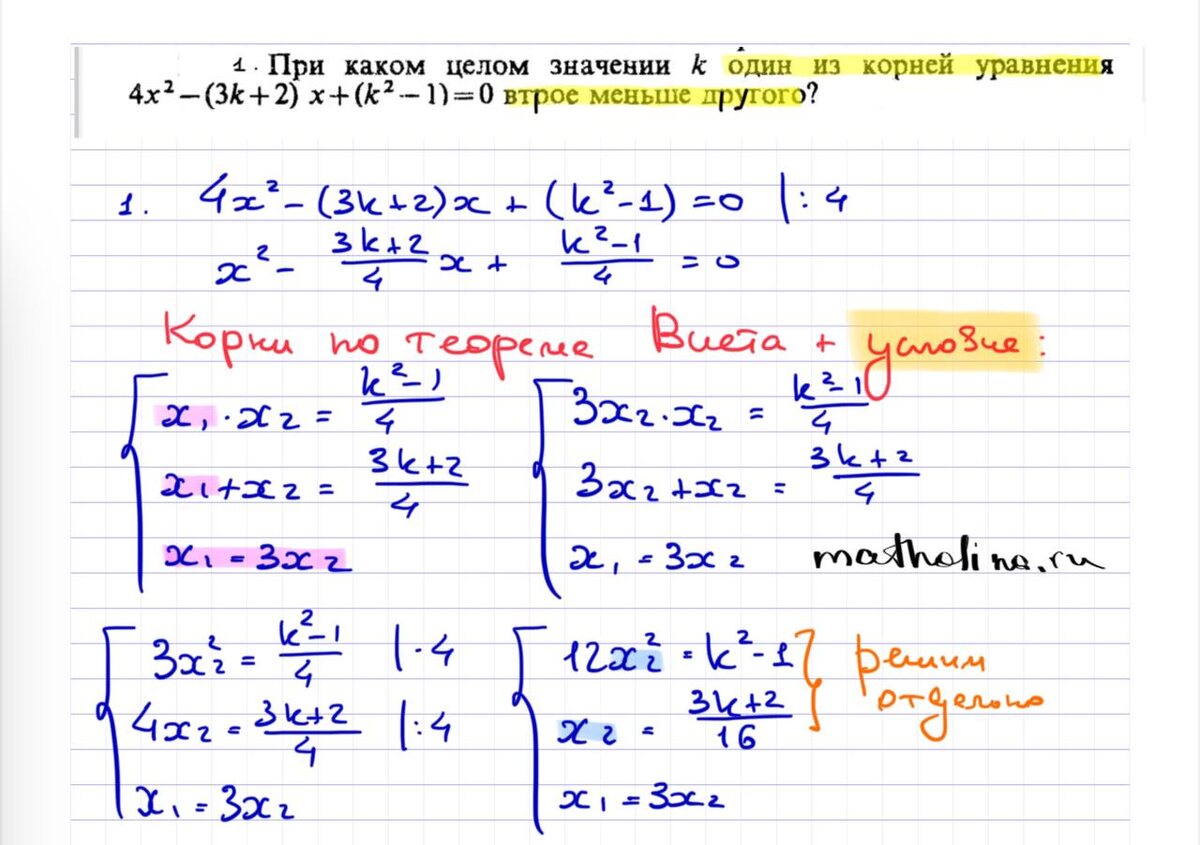 1. При каком целом значении k один из корней уравнения
4x² − (3k + 2) x + (k² − 1) = 0 втрое меньше другого?
1. 4x² − (3k+2)x + (k²−1) = 0 |: 4
x² − (3k+2)/4 x + (k²−1)/4 = 0
Корни по теореме Виета + условие:
{ x₁ · x₂ = (k²−1)/4
x₁ + x₂ = (3k+2)/4
x₁ = 3x₂
{ 3x₂ · x₂ = (k²−1)/4
3x₂ + x₂ = (3k+2)/4
x₁ = 3x₂
matholino.ru
{ 3x₂² = (k²−1)/4 | · 4
4x₂ = (3k+2)/4 |: 4
x₁ = 3x₂
{ 12x₂² = k²−1
x₂ = (3k+2)/16
x₁ = 3x₂
} решим
отдельно